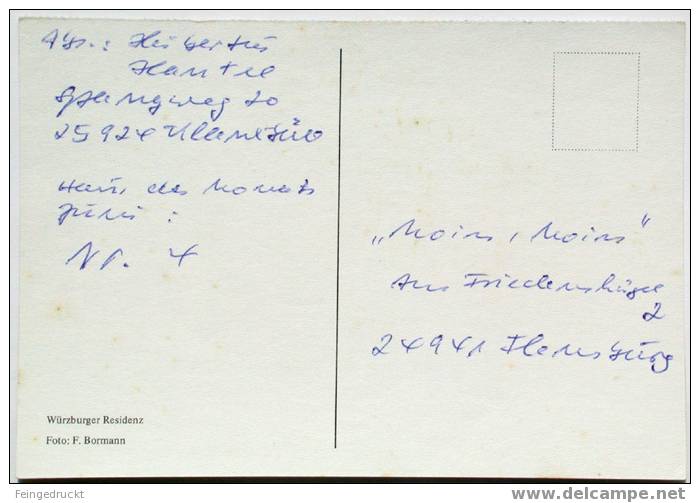 Abs.: Hubertus
Hantel
Spangweg 20
25924 Klanxbüll
Haus des Monats
Juni:
Nr. 4
„Moin, Moin“
Am Friedenshügel
2
24941 Flensburg
Würzburger Residenz
Foto: F. Bormann
Feingedruckt
www.delcampe.net